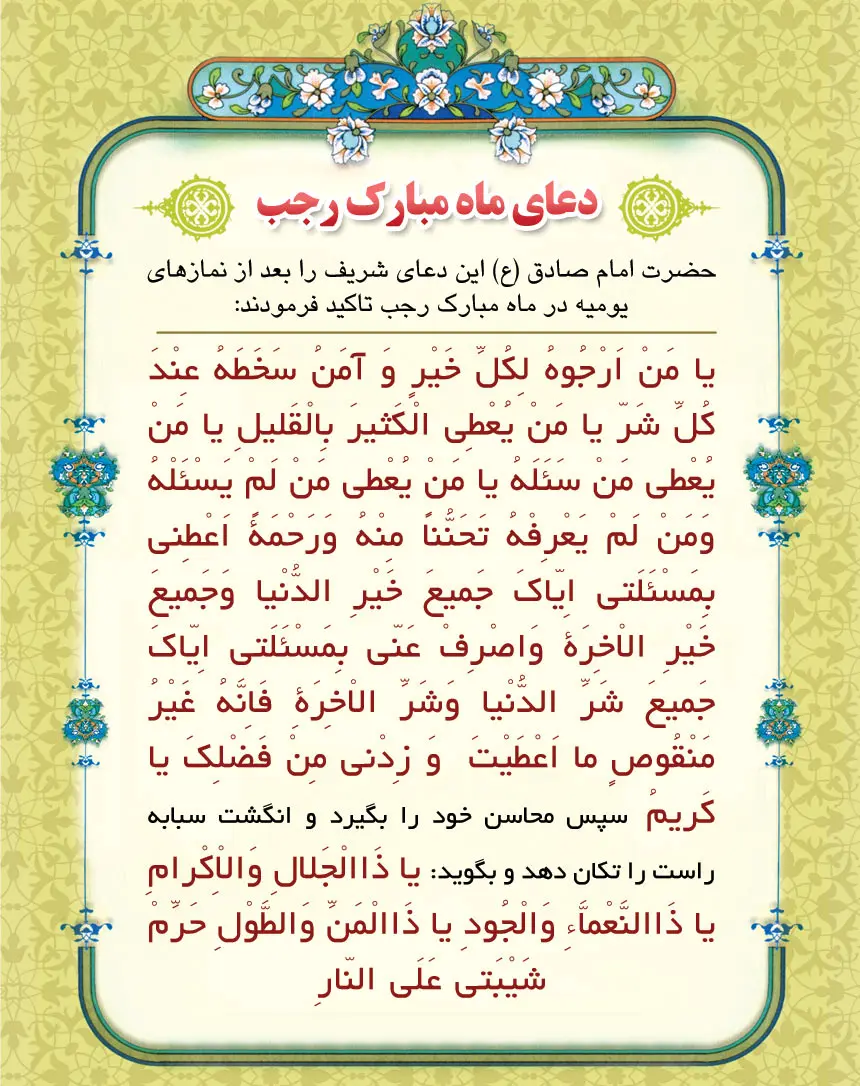 دعای ماه مبارک رجب
حضرت امام صادق (ع) این دعای شریف را بعد از نمازهای
یومیه در ماه مبارک رجب تاکید فرمودند:
یا مَنْ اَرْجُوهُ لِکُلِّ خَیْرٍ وَ آمَنُ سَخَطَهُ عِنْدَ
کُلِّ شَرّ یا مَنْ یُعْطِی الْکَثیرَ بِالْقَلیلِ یا مَنْ
یُعْطی مَنْ سَئَلَهُ یا مَنْ یُعْطی مَنْ لَمْ یَسْئَلْهُ
وَمَنْ لَمْ یَعْرِفْهُ تَحَنُّناً مِنْهُ وَرَحْمَةً اَعْطِنی
بِمَسْئَلَتی اِیّاکَ جَمیعَ خَیْرِ الدُّنْیا وَجَمیعَ
خَیْرِ الاْخِرَةِ وَاصْرِفْ عَنّی بِمَسْئَلَتی اِیّاکَ
جَمیعَ شَرِّ الدُّنْیا وَشَرِّ الاْخِرَةِ فَاِنَّهُ غَیْرُ
مَنْقُوصٍ ما اَعْطَیْتَ وَ زِدْنی مِنْ فَضْلِکَ یا
کَریمُ سپس محاسن خود را بگیرد و انگشت سبابه
راست را تکان دهد و بگوید: یا ذَاالْجَلالِ وَالاْکْرامِ
یا ذَاالنَّعْماَّءِ وَالْجُودِ یا ذَاالْمَنِّ وَالطَّوْلِ حَرِّمْ
شَیْبَتی عَلَی النّارِ